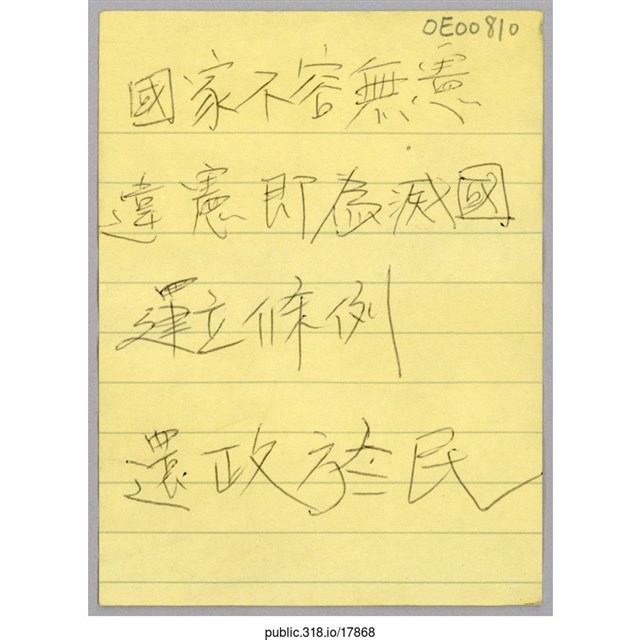 OE00810
國家不容無憲
違憲即為滅國
建立條例
還政於民
public.318.io/17868